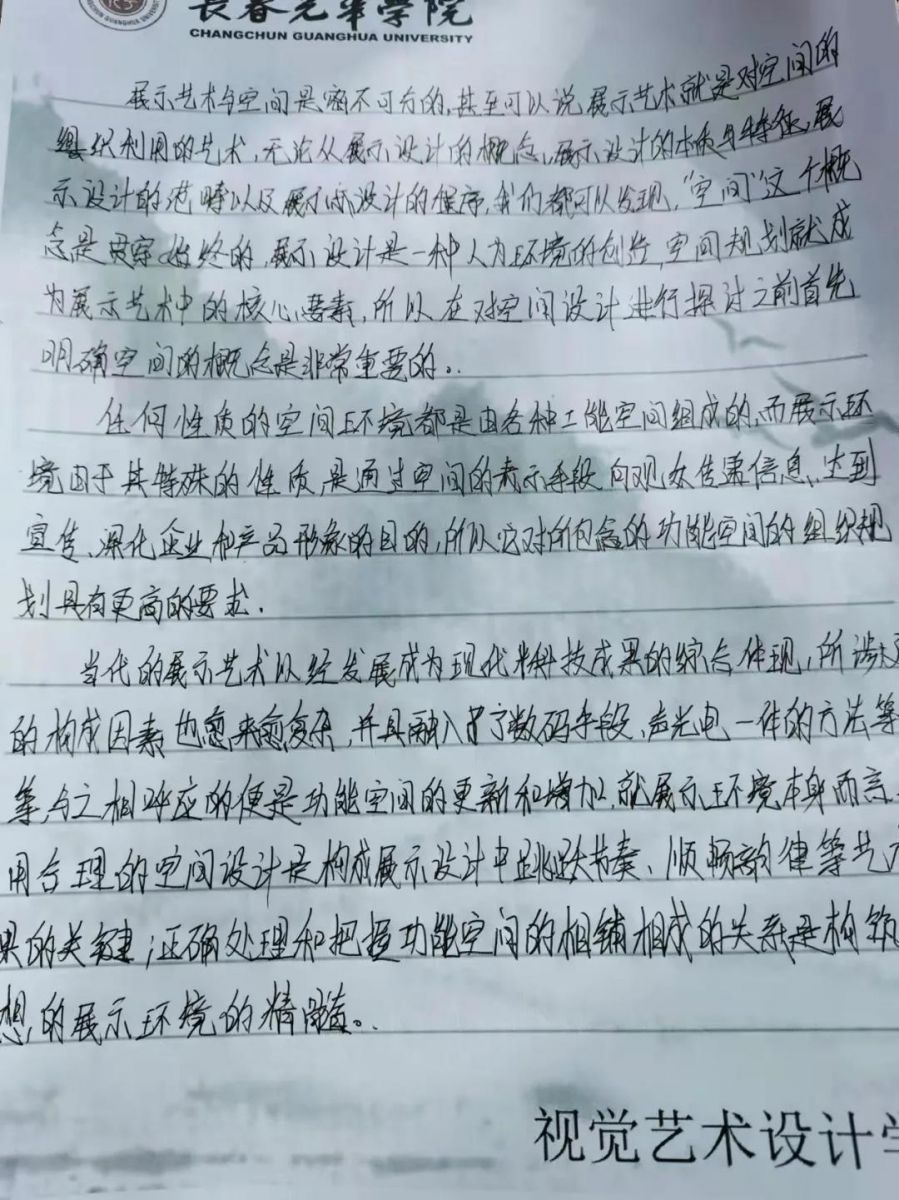 長春光華學院
CHANGCHUN GUANGHUA UNIVERSITY
展示艺术与空间是密不可分的,甚至可以说展示艺术就是对空间的
组织利用的艺术,无论从展示设计的概念、展示设计的本质与特征,展
示设计的范畴以及展示设计的程序,我们都可以发现,"空间"这个概
念是贯穿始终的,展示设计是一种人为环境的创造,空间规划就成
为展示艺术中的核心要素,所以在对空间设计进行探讨之前首先
明确空间的概念是非常重要的。
任何性质的空间环境都是由各种工能空间组成的,而展示环
境由于其特殊的性质,是通过空间的表示手段向观众传速信息、达到
宣传、深化企业和产品形象的目的,所以它对所包含的功能空间的组织规
划具有更高的要求.
当代的展示艺术以经发展成为现代科技成果的综合体现,所涉及
的构成因素也愈来愈复杂,并且融入了数码手段、声光电一体的方法等
等,与之相呼应的便是功能空间的更新和增加,就展示环境本身而言,
用合理的空间设计是构成展示设计中跳跃节奏、顺畅韵律等艺
果的关键;正确处理和把握功能空间的相辅相成的关系是构筑
想的展示环境的精髓。
视觉艺术设计学